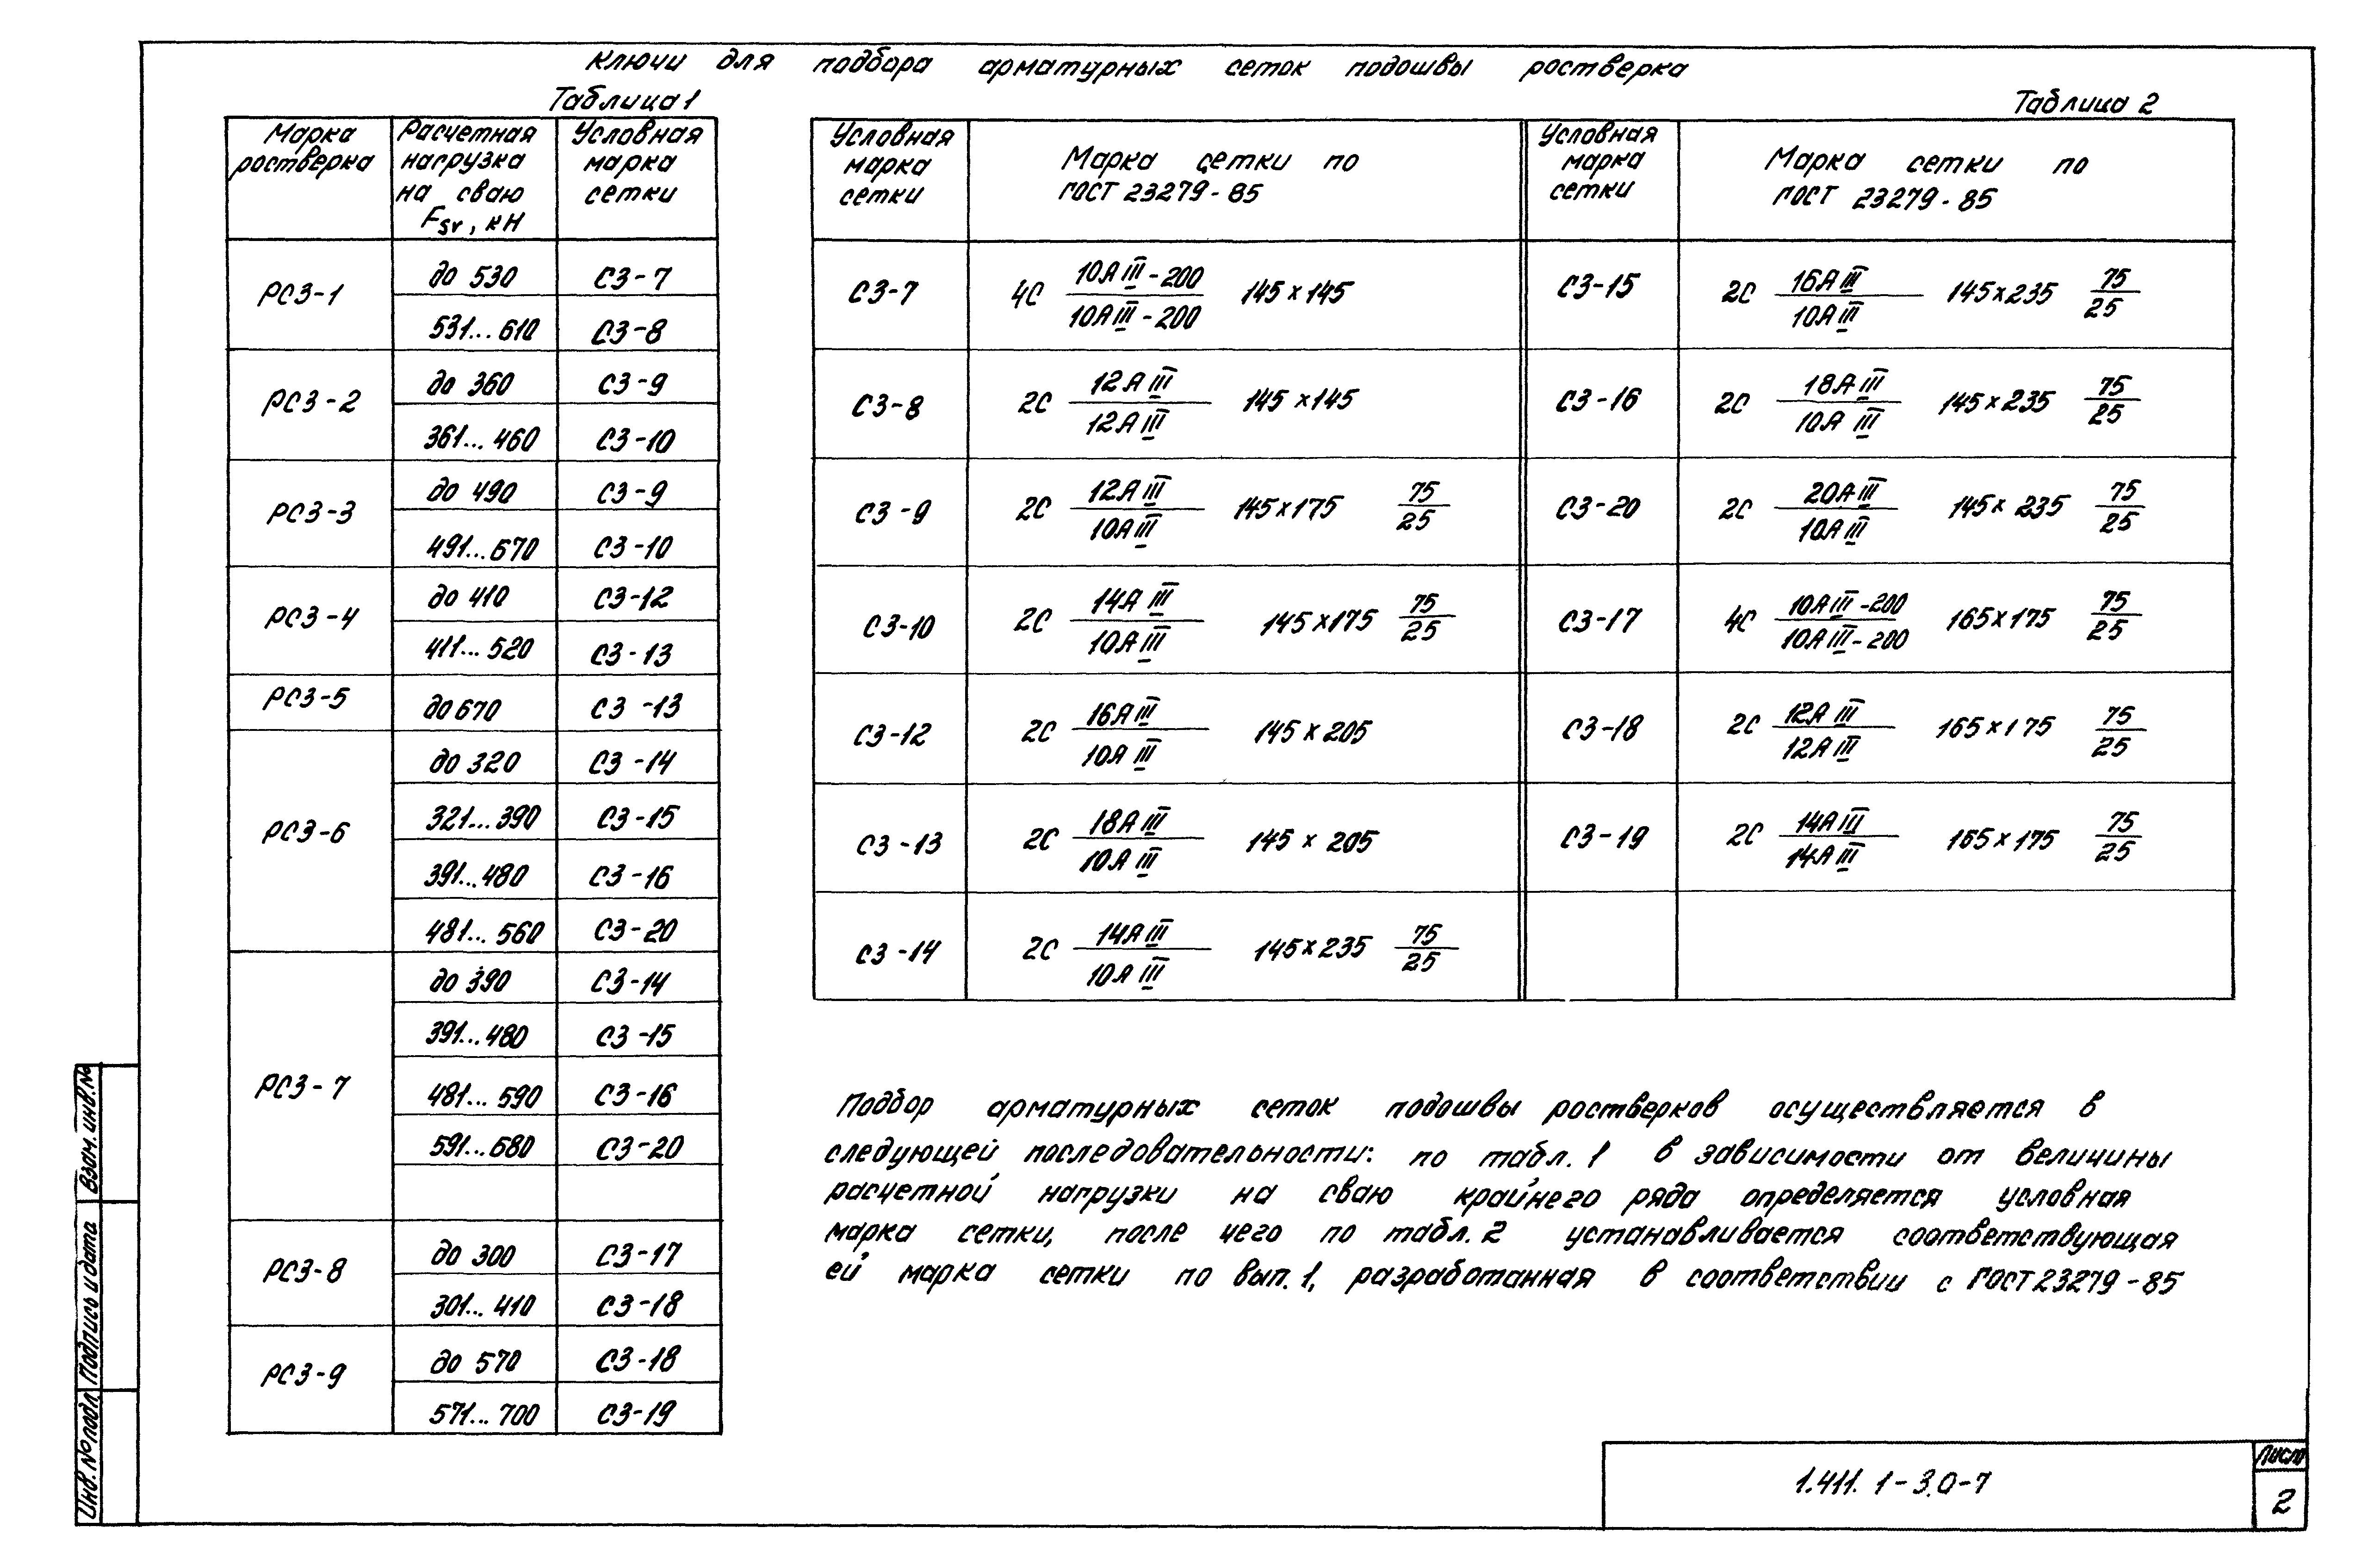 Ключи для подбора арматурных сеток подошвы ростверка
Таблица 1
Марка ростверка | Расчетная нагрузка на сваю Fsr, кН | Условная марка сетки
РС3-1 | до 530 | С3-7
531...610 | С3-8
РС3-2 | до 360 | С3-9
361...460 | С3-10
РС3-3 | до 490 | С3-9
491...670 | С3-10
РС3-4 | до 410 | С3-12
411...520 | С3-13
РС3-5 | до 670 | С3-13
РС3-6 | до 320 | С3-14
321...390 | С3-15
391...480 | С3-16
481...560 | С3-20
РС3-7 | до 390 | С3-14
391...480 | С3-15
481...590 | С3-16
591...680 | С3-20
РС3-8 | до 300 | С3-17
301...410 | С3-18
РС3-9 | до 570 | С3-18
571...700 | С3-19
Таблица 2
Условная марка сетки | Марка сетки по ГОСТ 23279-85 | Условная марка сетки | Марка сетки по ГОСТ 23279-85
С3-7 | 4С 10АIII-200/10АIII-200 145×145 | С3-15 | 2С 16АIII/10АIII 145×235 75/25
С3-8 | 2С 12АIII/12АIII 145×145 | С3-16 | 2С 18АIII/10АIII 145×235 75/25
С3-9 | 2С 12АIII/10АIII 145×175 75/25 | С3-20 | 2С 20АIII/10АIII 145×235 75/25
С3-10 | 2С 14АIII/10АIII 145×175 75/25 | С3-17 | 4С 10АIII-200/10АIII-200 165×175 75/25
С3-12 | 2С 16АIII/10АIII 145×205 | С3-18 | 2С 12АIII/12АIII 165×175 75/25
С3-13 | 2С 18АIII/10АIII 145×205 | С3-19 | 2С 14АIII/14АIII 165×175 75/25
С3-14 | 2С 14АIII/10АIII 145×235 75/25
Подбор арматурных сеток подошвы ростверков осуществляется в
следующей последовательности: по табл. 1 в зависимости от величины
расчетной нагрузки на сваю крайнего ряда определяется условная
марка сетки, после чего по табл. 2 устанавливается соответствующая
ей марка сетки по вып. 1, разработанная в соответствии с ГОСТ 23279-85
Инв. № подл. Подпись и дата Взам. инв. №
1.411.1-3.0-7
Лист
2